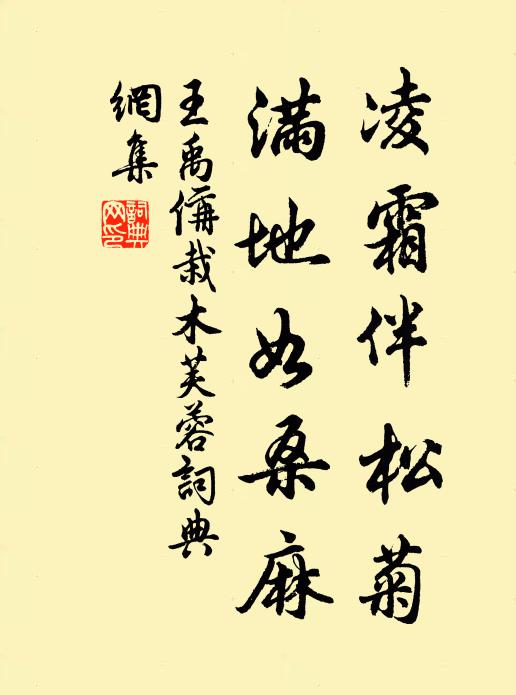 凌霜伴松菊
滿地如桑麻
王禹偁栽木芙蓉詞典
網集
詞典
网印